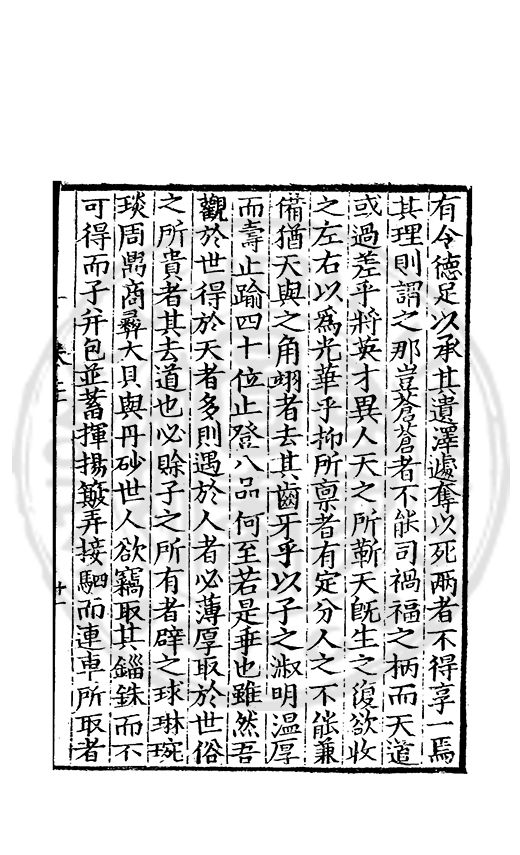 有令德足以承其遺澤遽奪以死兩者不得享一焉
其理則謂之那豈蒼蒼者不能司禍福之柄而天道
或過差乎將英才異人天之所靳天旣生之復欲收
之左右以爲光華乎抑所禀者有定分人之不能兼
備猶天與之角翊者去其齒牙乎以子之淑明溫厚
而壽止踰四十位止登八品何至若是乖也雖然吾
觀於世得於天者多則遇於人者必薄厚取於世俗
之所貴者其去道也必賒子之所有者辟之球琳琬
琰周鼎商彝大貝與丹砂世人欲竊取其錙銖而不
可得而子并包並蓄揮揚簸弄接駟而連車所取者